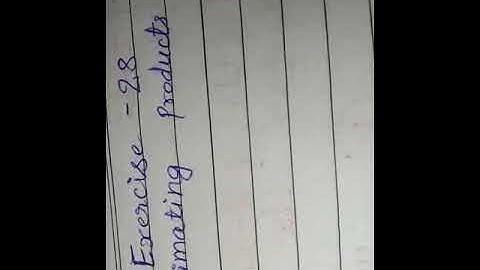 Exercise - 2.8
imating products